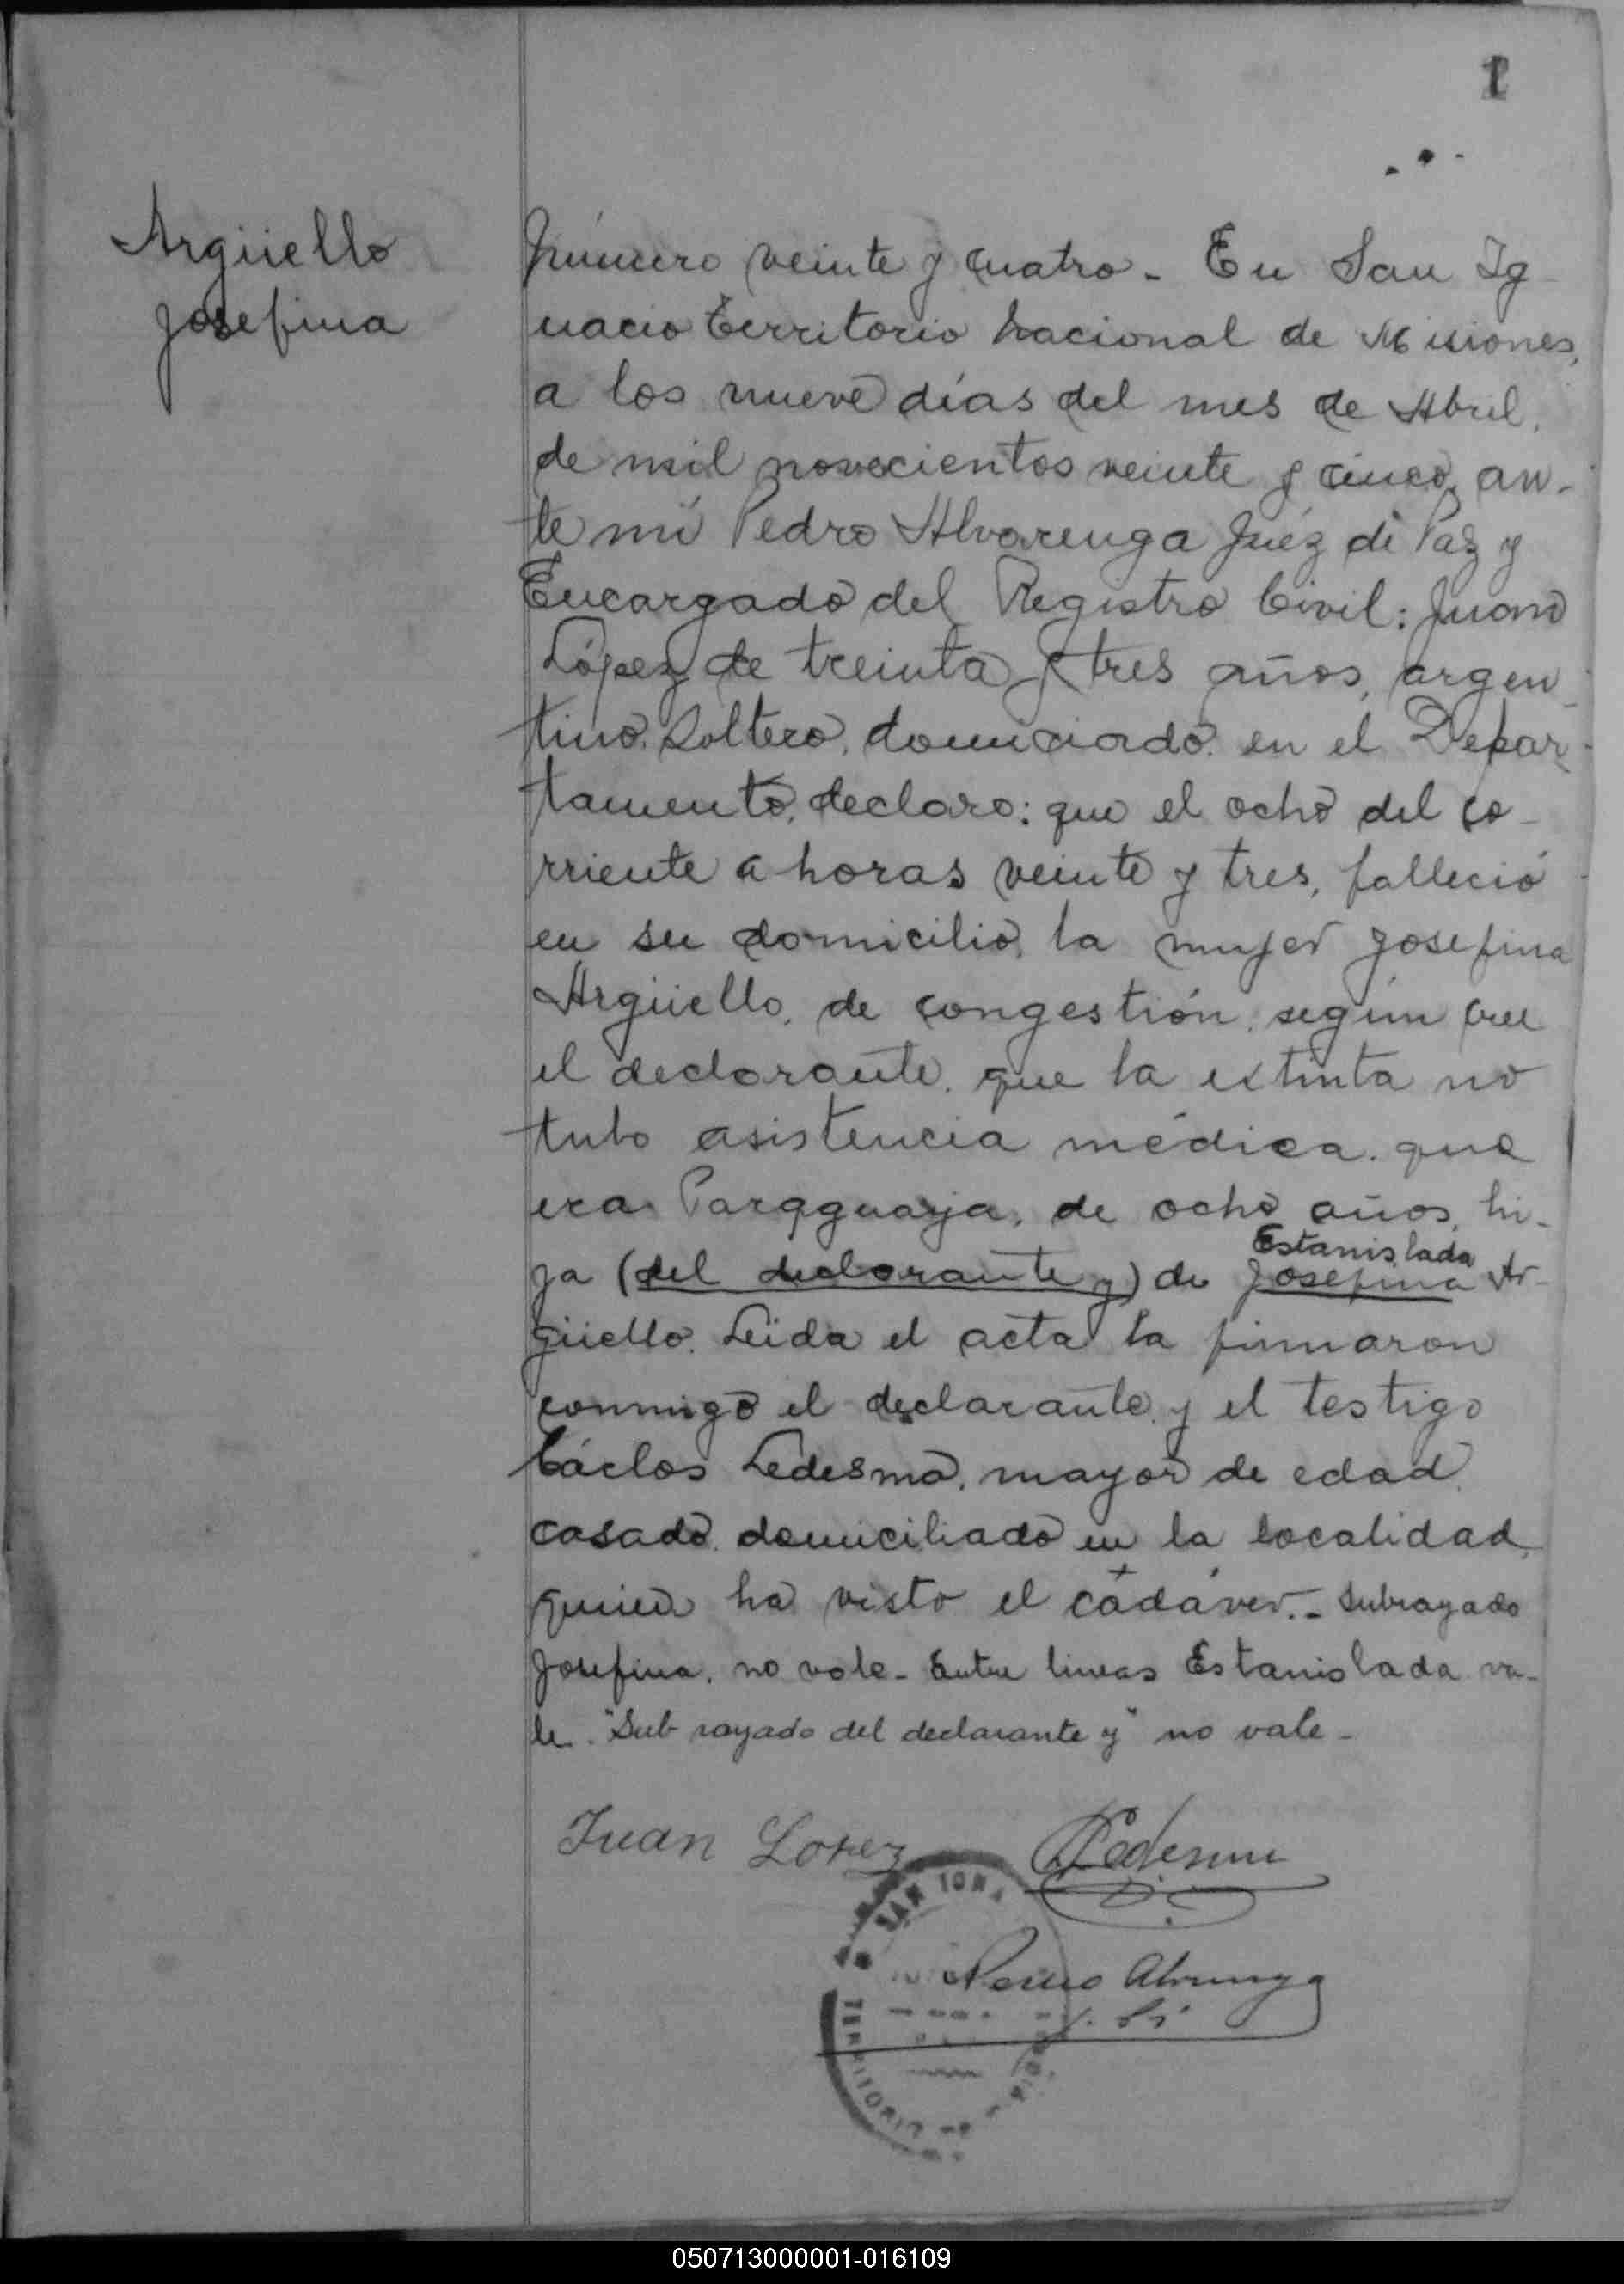 1
Argüello
Josefina
Número veinte y cuatro - En San Ig
nacio Territorio Nacional de Misiones,
a los nueve días del mes de Abril,
de mil novecientos veinte y cinco, an-
te mí Pedro Alvarenga Juéz de Paz y
Encargado del Registro Civil: Juan
López de treinta y tres años, argen
tino, soltero, domiciado en el Depar-
tamento, declaro: que el ocho del co-
rriente a horas veinte y tres, falleció
en su domicilio, la mujer Josefina
Argüello, de congestión, según cree
el declarante, que la extinta no
tubo asistencia médica, que
era Paragguaya, de ocho años, hi-
Estanislada
ja (del declarante y) de Josefina Ar-
güello. Leida el acta la firmaron
conmigo el declarante y el testigo
Cárlos Ledesma, mayor de edad,
casado, domiciliado en la localidad,
quien ha visto el cadáver.- Subrayado
Josefina, no vale - Entre lineas Estanislada va-
le. "Sub rayado del declarante y" no vale -
Juan Lopez
Ledesma
SAN IGNA
TERRITORIO DE
050713000001-016109